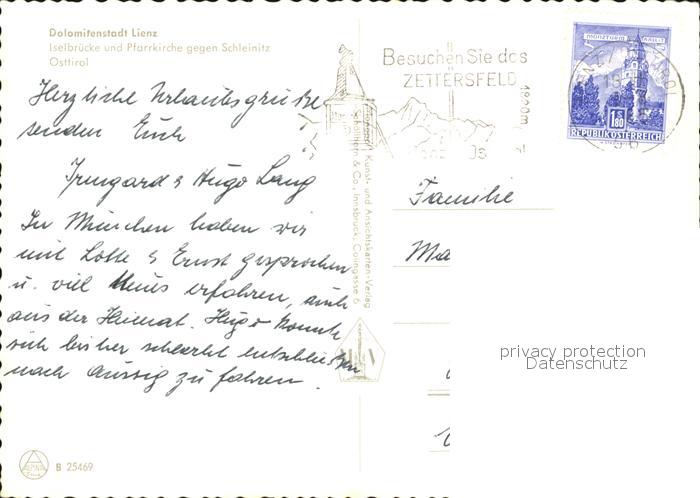 Dolomitenstadt Lienz
Iselbrücke und Pfarrkirche gegen Schleinitz
Osttirol
Herzliche Urlaubsgrüße
senden Euch
Irmgard & Hugo Lang
In München haben wir
mit Lotte & Ernst gesprochen
u. viel Neues erfahren, auch
aus der Heimat. Hugo konnte
sich bisher schlecht entschließen
nach Aussig zu fahren.
B 25469
ALPINA
Kunst- und Ansichtskarten-Verlag
& Co., Innsbruck,
Besuchen Sie das
ZETTERSFELD
1800m
MÜNZTURM
HALL
S
1.80
REPUBLIK ÖSTERREICH
Familie
Ma
privacy protection
Datenschutz